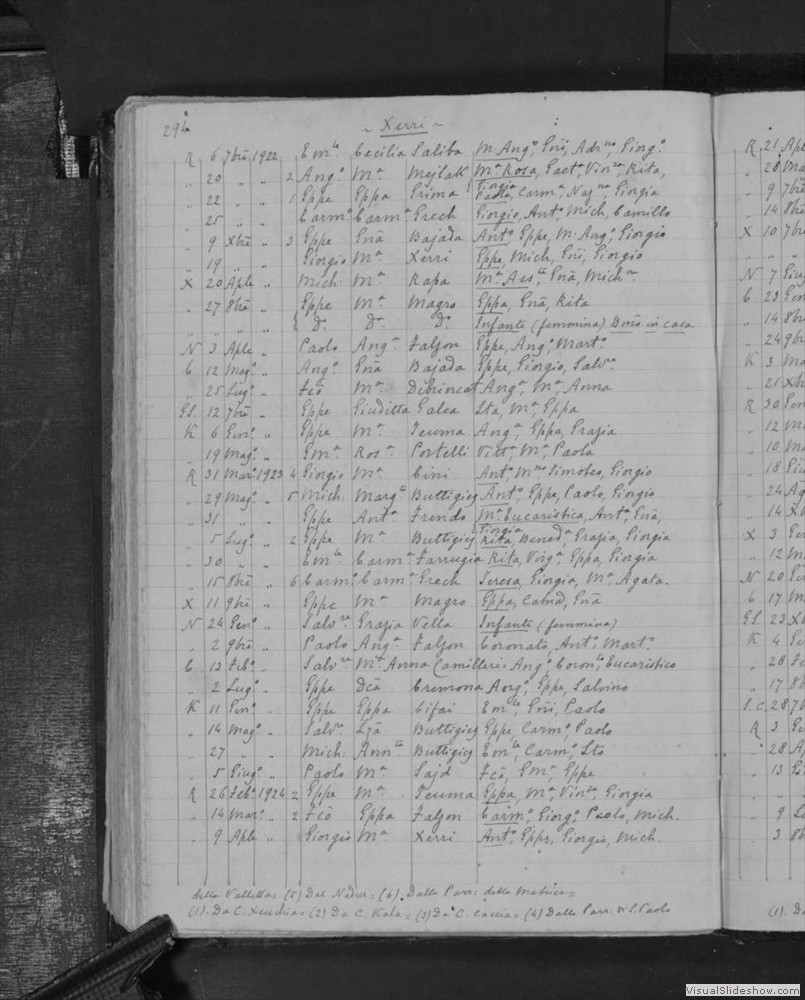 294
~ Xerri ~
R 6 7bre 1922 Em.le Cecilia Saliba M. Ang.o, Gni, Adr.no, Giorg.o
" 20 " " 2 Ang.o M.a Mejlak M.a Rosa, Gaet.a Vin.za Rita, Giorgia
" 22 " " 1 Gppe Gppa Grima Paola, Carm.a, Giorgia
" 25 " " Carm.o Carm.a Grech Giorgio, Ant.o Mich, Camillo
" 9 Xbre " 3 Gppe Gna Bajada Ant.o, Gppe, M. Ang.o, Giorgio
" 19 " " Giorgio M.a Xerri Gppe, Mich, Gni, Giorgio
X 20 Aple " Mich: M.a Rapa M.a Gna, Mich.na
" 27 8bre " Gppe M.a Magro Gppa, Gna, Rita
" " " " D.o D.a D.o Infante (femmina) in casa
N 3 Aple " Paolo Ang.a Falzon Gppe, Ang.o, Mart.o
C 12 Mag.o " Ang.o Gna Bajada Gppe, Giorgio, Salv.re
" 25 Lug.o " Fco M.a Debrincat Ang.a, M.a, Anna
GS. 12 7bre " Gppe Giuditta Galea Sta, M.a, Gppa
K 6 Gen.o " Gppe M.a Teuma Ang.a, Gppa, Grazia
" 19 Mag.o " Em.a Ros.a Portelli Vitt.a M.a, Paola
R 31 Mar.o 1923 4 Giorgio M.a Cini Ant.o M.no Timoteo, Giorgio
" 29 Mag.o " 5 Mich: Marg.ta Buttigieg Ant.o Gppe, Paolo, Giorgio
" 31 " " Gppe Ant.a Frendo M.a Eucaristica, Ant.a, Gna, Giorgia
" 5 Lug.o " 2 Gppe M.a Buttigieg Rita, Bened.a, Grazia, Giorgia
" 30 " " Em.le Carm.a Farrugia Rita, Virg.a, Gppa, Giorgia
" 15 8bre " 6 Carm.o Carm.a Grech Teresa, Giorgia, M.a, Agata.
X 11 9bre " Gppe M.a Magro Gppa, Gna
N 24 Gen.o " Salv.re Grazia Vella Infante (femmina)
" 2 9bre " Paolo Ang.a Falzon Coronato, Ant.o, Mart.o
C 13 Feb.o " Salv.re M.a Anna Camilleri Ang.o Coron.to, Eucaristico
" 2 Lug.o " Gppe Dca Cremona Ang.o, Gppe, Salvino
K 11 Gen.o " Gppe Gppa Cifai Em.le, Gni, Paolo
" 14 Mag.o " Salv.re Lza Buttigieg Gppe, Carm.o, Paolo
" 27 " " Mich: Ann.ta Buttigieg Em.le, Carm.o, Sto
" 5 Giug.o " Paolo M.a Sajd Fco, Em.le, Gppe
R 26 Feb.o 1924 2 Gppe M.a Teuma Gppa, M.a, Vin.za, Giorgia
" 14 Mar.o " 2 Fco Gppa Falzon Carm.o, Giorg.o, Paolo, Mich.
" 9 Aple " Giorgio M.a Xerri Ant.o, Gppe, Giorgio, Mich.
della Valletta = (5) Dal Nadur = (6) Dalla Parr: della Matrice =
(1) Da C. Xeuchia = (2) Da C. Kala = (3) Da C. Caccia = (4) Dalla Parr: di S. Paolo
R 21 Aple
" 28
" 9 7bre
" 14 8bre
X 10 7bre
N 7 Giug
C 23
" 14 8bre
" 24 9bre
K 3
" 21 Xb
R 30 Gen
" 12
" 10
" 18
" 24 Ag
" 14 Xb
X 3
" 12
N 20
C 17
GS. 23 Xb
K 4
" 28 Fe
" 17
S.C. 28 7b
R 3
" 28 A
" 13
" 9
" 3 8b
(1). Da
VisualSlideshow.com